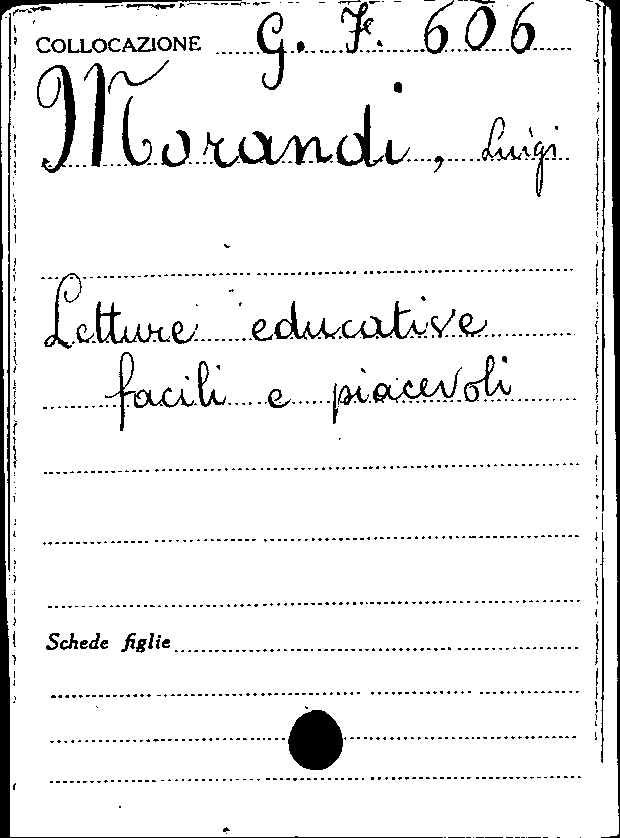 COLLOCAZIONE G. F. 606
Morandi, Luigi
Letture educative
facili e piacevoli
Schede figlie